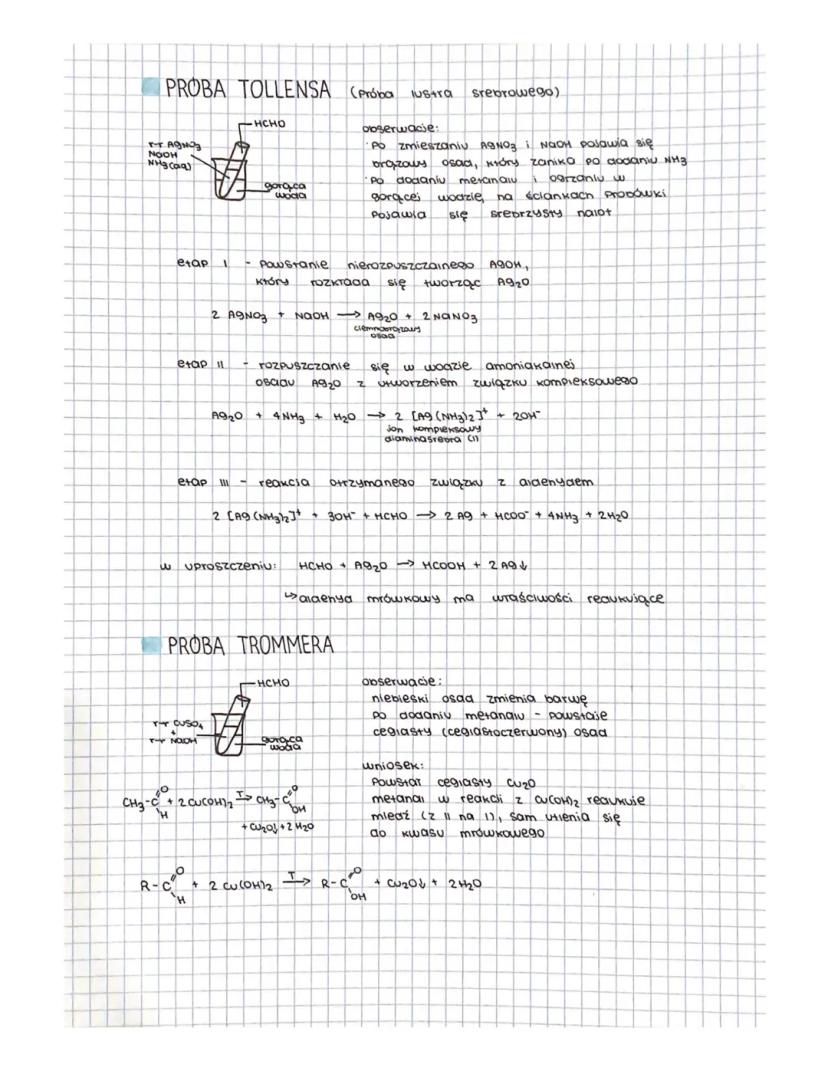 PRÓBA TOLLENSA (próba lustra srebrowego)
HCHO
r-r AgNO3
NaOH
NH3(aq)
gorąca
woda
obserwacje:
· Po zmieszaniu AgNO3 i NaOH pojawia się
brązowy osad, który zanika po dodaniu NH3
· Po dodaniu metanalu i ogrzaniu w
gorącej wodzie, na ściankach probówki
pojawia się srebrzysty nalot
etap I - powstanie nierozpuszczalnego AgOH,
który rozkłada się tworząc Ag2O
2 AgNO3 + NaOH → Ag2O + 2 NaNO3
ciemnobrązowy
osad
etap II - rozpuszczanie się w wodzie amoniakalnej
osadu Ag2O z utworzeniem związku kompleksowego
Ag2O + 4NH3 + H2O → 2 [Ag(NH3)2]+ + 2OH-
jon kompleksowy
diaminasrebra (I)
etap III - reakcja otrzymanego związku z aldehydem
2 [Ag(NH3)2]+ + 3OH- + HCHO → 2 Ag + HCOO- + 4NH3 + 2H2O
w uproszczeniu: HCHO + Ag2O → HCOOH + 2 Ag↓
↳ aldehyd mrówkowy ma właściwości redukujące
PRÓBA TROMMERA
HCHO
r-r CuSO4
+
r-r NaOH
gorąca
woda
obserwacje:
niebieski osad zmienia barwę
po dodaniu metanalu - powstaje
ceglasty (ceglastoczerwony) osad
wniosek:
Powstał ceglasty Cu2O
metanal w reakcji z Cu(OH)2 redukuje
miedź (z II na I), sam utlenia się
do kwasu mrówkowego
CH3-C=O H + 2 Cu(OH)2 T→ CH3-C=O OH
+ Cu2O↓ + 2 H2O
R-C=O H + 2 Cu(OH)2 T→ R-C=O OH + Cu2O↓ + 2H2O